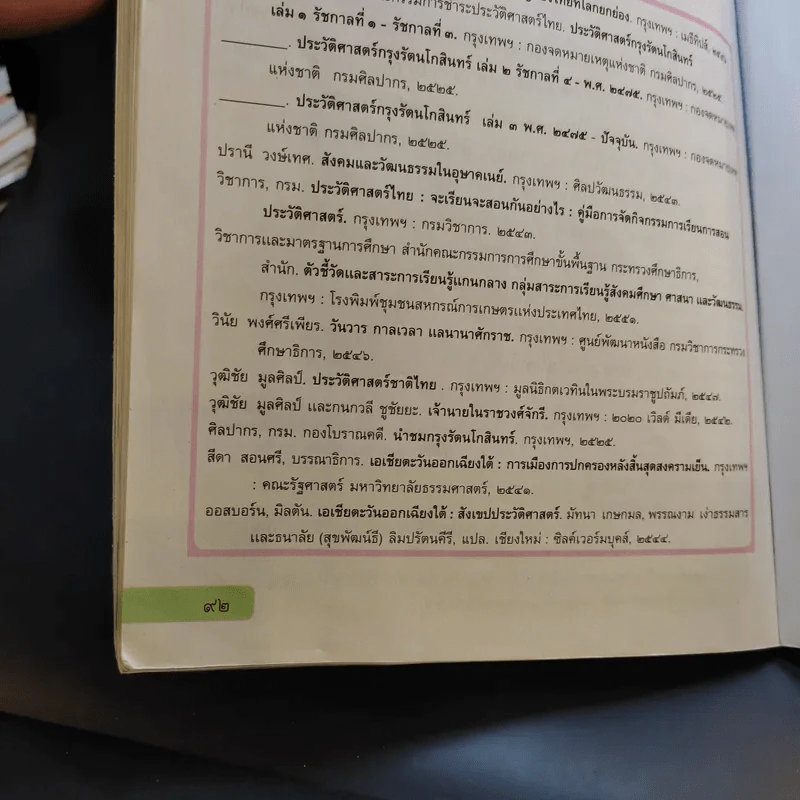 ไทยที่โลกยกย่อง. กรุงเทพฯ : เมธีทิปส์,
กรรมการชำระประวัติศาสตร์ไทย. ประวัติศาสตร์กรุงรัตนโกสินทร์
เล่ม ๑ รัชกาลที่ ๑ - รัชกาลที่ ๓. กรุงเทพฯ : กองจดหมายเหตุแห่งชาติ กรมศิลปากร, ๒๕๒๕.
_______. ประวัติศาสตร์กรุงรัตนโกสินทร์ เล่ม ๒ รัชกาลที่ ๔ - พ.ศ. ๒๔๗๕. กรุงเทพฯ : กองจดหมายเหตุ
แห่งชาติ กรมศิลปากร, ๒๕๒๕.
_______. ประวัติศาสตร์กรุงรัตนโกสินทร์ เล่ม ๓ พ.ศ. ๒๔๗๕ - ปัจจุบัน. กรุงเทพฯ : กองจดหมายเหตุ
แห่งชาติ กรมศิลปากร, ๒๕๒๕.
ปรานี วงษ์เทศ. สังคมและวัฒนธรรมในอุษาคเนย์. กรุงเทพฯ : ศิลปวัฒนธรรม, ๒๕๔๓.
วิชาการ, กรม. ประวัติศาสตร์ไทย : จะเรียนจะสอนกันอย่างไร : คู่มือการจัดกิจกรรมการเรียนการสอน
ประวัติศาสตร์. กรุงเทพฯ : กรมวิชาการ. ๒๕๔๓.
วิชาการและมาตรฐานการศึกษา สำนักคณะกรรมการการศึกษาขั้นพื้นฐาน กระทรวงศึกษาธิการ,
สำนัก. ตัวชี้วัดและสาระการเรียนรู้แกนกลาง กลุ่มสาระการเรียนรู้สังคมศึกษา ศาสนา และวัฒนธรรม.
กรุงเทพฯ : โรงพิมพ์ชุมชนสหกรณ์การเกษตรแห่งประเทศไทย, ๒๕๕๑.
วินัย พงศ์ศรีเพียร. วันวาร กาลเวลา แลนานาศักราช. กรุงเทพฯ : ศูนย์พัฒนาหนังสือ กรมวิชาการกระทรวง
ศึกษาธิการ, ๒๕๔๖.
วุฒิชัย มูลศิลป์. ประวัติศาสตร์ชาติไทย . กรุงเทพฯ : มูลนิธิกตเวทินในพระบรมราชูปถัมภ์, ๒๕๔๗.
วุฒิชัย มูลศิลป์ และกนกวลี ชูชัยยะ. เจ้านายในราชวงศ์จักรี. กรุงเทพฯ : ๒๐๒๐ เวิลด์ มีเดีย, ๒๕๔๒.
ศิลปากร, กรม. กองโบราณคดี. นำชมกรุงรัตนโกสินทร์. กรุงเทพฯ, ๒๕๒๕.
สีดา สอนศรี, บรรณาธิการ. เอเชียตะวันออกเฉียงใต้ : การเมืองการปกครองหลังสิ้นสุดสงครามเย็น. กรุงเทพฯ
: คณะรัฐศาสตร์ มหาวิทยาลัยธรรมศาสตร์, ๒๕๔๑.
ออสบอร์น, มิลตัน. เอเชียตะวันออกเฉียงใต้ : สังเขปประวัติศาสตร์. มัทนา เกษกมล, พรรณงาม เง่าธรรมสาร
และธนาลัย (สุขพัฒน์ธี) ลิมปรัตนคีรี, แปล. เชียงใหม่ : ซิลค์เวอร์มบุคส์, ๒๕๔๔.
๙๒